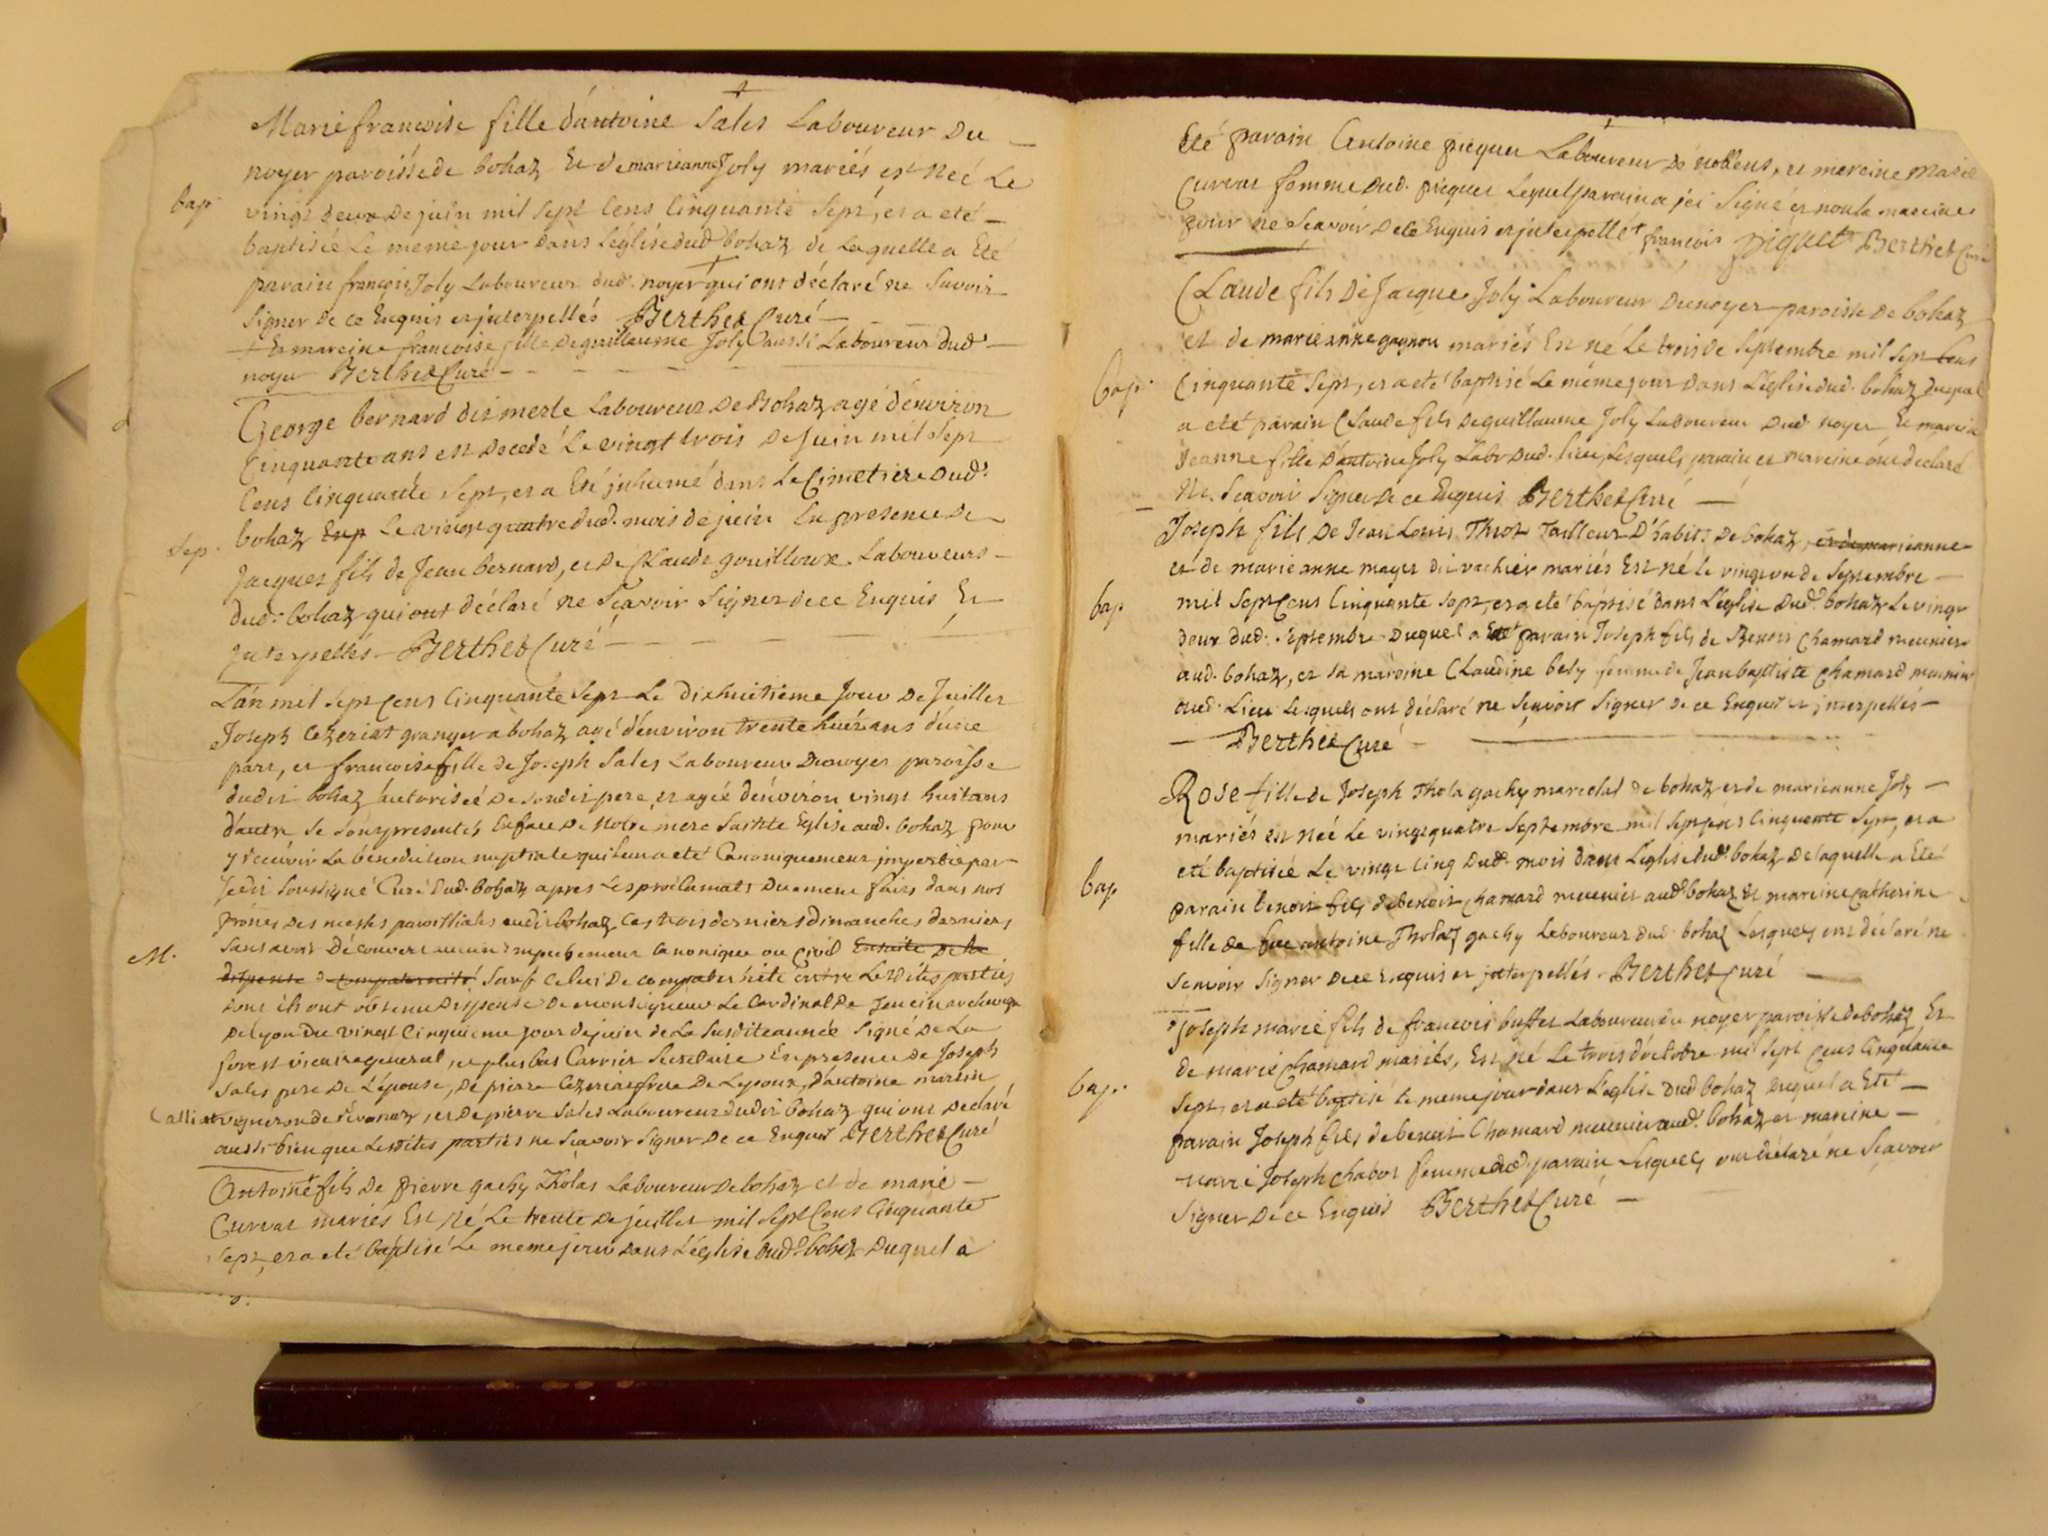 Marie françoise fille d'antoine Sales Laboureur Du
noyer paroisse de bohaz Et de marieanne Joly mariés est Neé Le
bap. vingt deux De juin mil sept Cens Cinquante Sept, et a eté
baptisée Le meme jour dans L'église dud. bohaz de Laquelle a Eté
parain françois Joly Laboureur dud. noyer + qui ont déclaré ne Savoir
Signer De ce Enquis et juterpellés Berthet Curé
+ Et mareine françoise fille de guillaume Joly aussi Laboureur dud.
noyer Berthet Curé
George bernard dit merle Laboureur De Bohaz agé d'environ
Cinquante ans est Decedé Le vingt trois De Juin mil Sept
Cens Cinquante Sept, et a Eté juhumé dans Le Cimetiere Dud.
Sep. bohaz Le vingt quatre dud. mois de juin En presence De
Jacques fils de Jean bernard, et De Claude gouilloux Laboureurs
dud. bohaz qui ont déclaré ne Sçavoir Signer de ce Enquis Et
Juterpellés Berthet Curé
L'an mil sept Cens Cinquante Sept Le dixhuitième Jour De Juillet
Joseph Cezeriat granger a bohaz agé d'environ trente huit ans d'une
part, et francoise fille de Joseph Sales Laboureur Du noyer paroisse
dudit bohaz autorisée De sondit pere et agée d'environ vingt huit ans
d'autre Se Sont presentés En face De Notre mere Sainte Eglise aud. bohaz pour
y recevoir La bénédiction nuptiale qui leur a eté Canoniquement jmpartie par
Je dit Soussigné Curé Dud. bohaz apres Les proclamats Duement faits dans nos
prônes Des messes paroissiales audit bohaz Les trois derniers dimanches derniers
M. Sans avoir Découvert aucun empechement Canonique ou Civil Ensuite De la
dispense de Compaternité Sauf Celui De compaternité entre Lesdites parties
dont ils ont obtenu Dispense De monseigneur Le Cardinal De Tencin archevêque
De Lyon Du vingt Cinquieme jour de juin de La Susdite année Signé De La
forest vicaire general, et plus bas Carrier Secretaire En presence de Joseph
Sales pere De L'épouse, De pierre Cezeriat frere De Lepoux, d'antoine martin
Calliat vigneron de revonnaz, et De pierre Sales Laboureur dudit bohaz qui ont Declaré
aussi bien que Lesdites parties ne Sçavoir Signer De ce Enquis Berthet Curé
Antoine fils De pierre gachy Tholas Laboureur De bohaz et de marie
Curvat mariés Est Né Le trente De juillet mil Sept Cens Cinquante
Sept, et a eté baptisé Le meme jour Dans L'église dud. bohaz Duquel a
Eté parain Antoine piquet Laboureur De noblens, et mareine Marie
Curvat femme Dud. piquet Lequel parain a jci Signé et non la mareine
pour ne Sçavoir De ce Enquis et juterpellé + françois piquet Berthet Curé
Claude fils De Jacque Joly Laboureur Du noyer paroisse De bohaz
et de marieanne gagnou mariés Est né Le trois De Septembre mil Sept Cens
bap. Cinquante Sept, et a eté baptisé Le même jour Dans L'église dud. bohaz Duquel
a eté parain Claude fils De guillaume Joly Laboureur Dud. noyer Et mareine
Jeanne fille D'antoine Joly Labr. Dud. lieu, Lesquels parain et mareine ont declaré
Ne Scavoir Signer De ce Enquis Berthet Curé
Joseph fils De Jean Louis Thiot Tailleur D'habits De bohaz, et de marieanne
et de marieanne mayet dit vachier mariés Est né le vingt un de Septembre
bap mil Sept Cens Cinquante sept, et a eté baptisé dans L'église Dud. bohaz Le vingt
deux dud. Septembre Duquel a Eté parain Joseph fils de Benoit Chamard meunier
aud. bohaz, et Sa mareine Claudine bely femme de Jean baptiste Chamard meunier
aud. Lieu Lesquels ont déclaré ne Sçavoir Signer de ce Enquis et juterpellés
Berthet Curé
Rose fille de Joseph Thola gachy marechal de bohaz et de marieanne Joly
mariés est née Le vingt quatre Septembre mil Sept Cens Cinquante Sept, et a
bap eté baptisée Le vingt Cinq Dud. mois dans L'eglise Dud. bohaz De laquelle a Eté
parain benoit fils de benoit Chamard meunier aud. bohaz Et mareine Catherine
fille de feu antoine Tholaz gachy Laboureur Dud. bohaz Lesquels ont déclaré ne
Scavoir Signer De ce Enquis et juterpellés. Berthet Curé
Joseph marie fils de francois buffet Laboureur du noyer paroisse de bohaz Et
de marie Chamard mariés, Est né Le trois d'octobre mil Sept Cens Cinquante
bap. Sept, et a eté baptisé le meme jour dans L'église Dud. bohaz Duquel a Eté
parain Joseph fils de benoit Chamard meunier aud. bohaz et mareine
marie Joseph Chabot femme dud. parain Lesquels ont déclaré ne Sçavoir
Signer De ce Enquis Berthet Curé